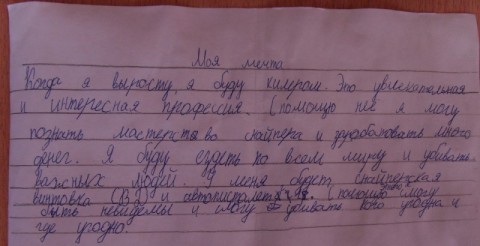 Моя мечта
Когда я выросту, я буду килером. Это увлекательная
и интересная професия. С помощю неё я могу
познать мастерство снайпера и зарабатовать много
денег. Я буду ездеть по всем миру и убивать
важных людей. У меня будет снайперская
винтовка и автопистолет. С помощю смогу
быть невидемы и смогу убивать кого угодно и
где угодно